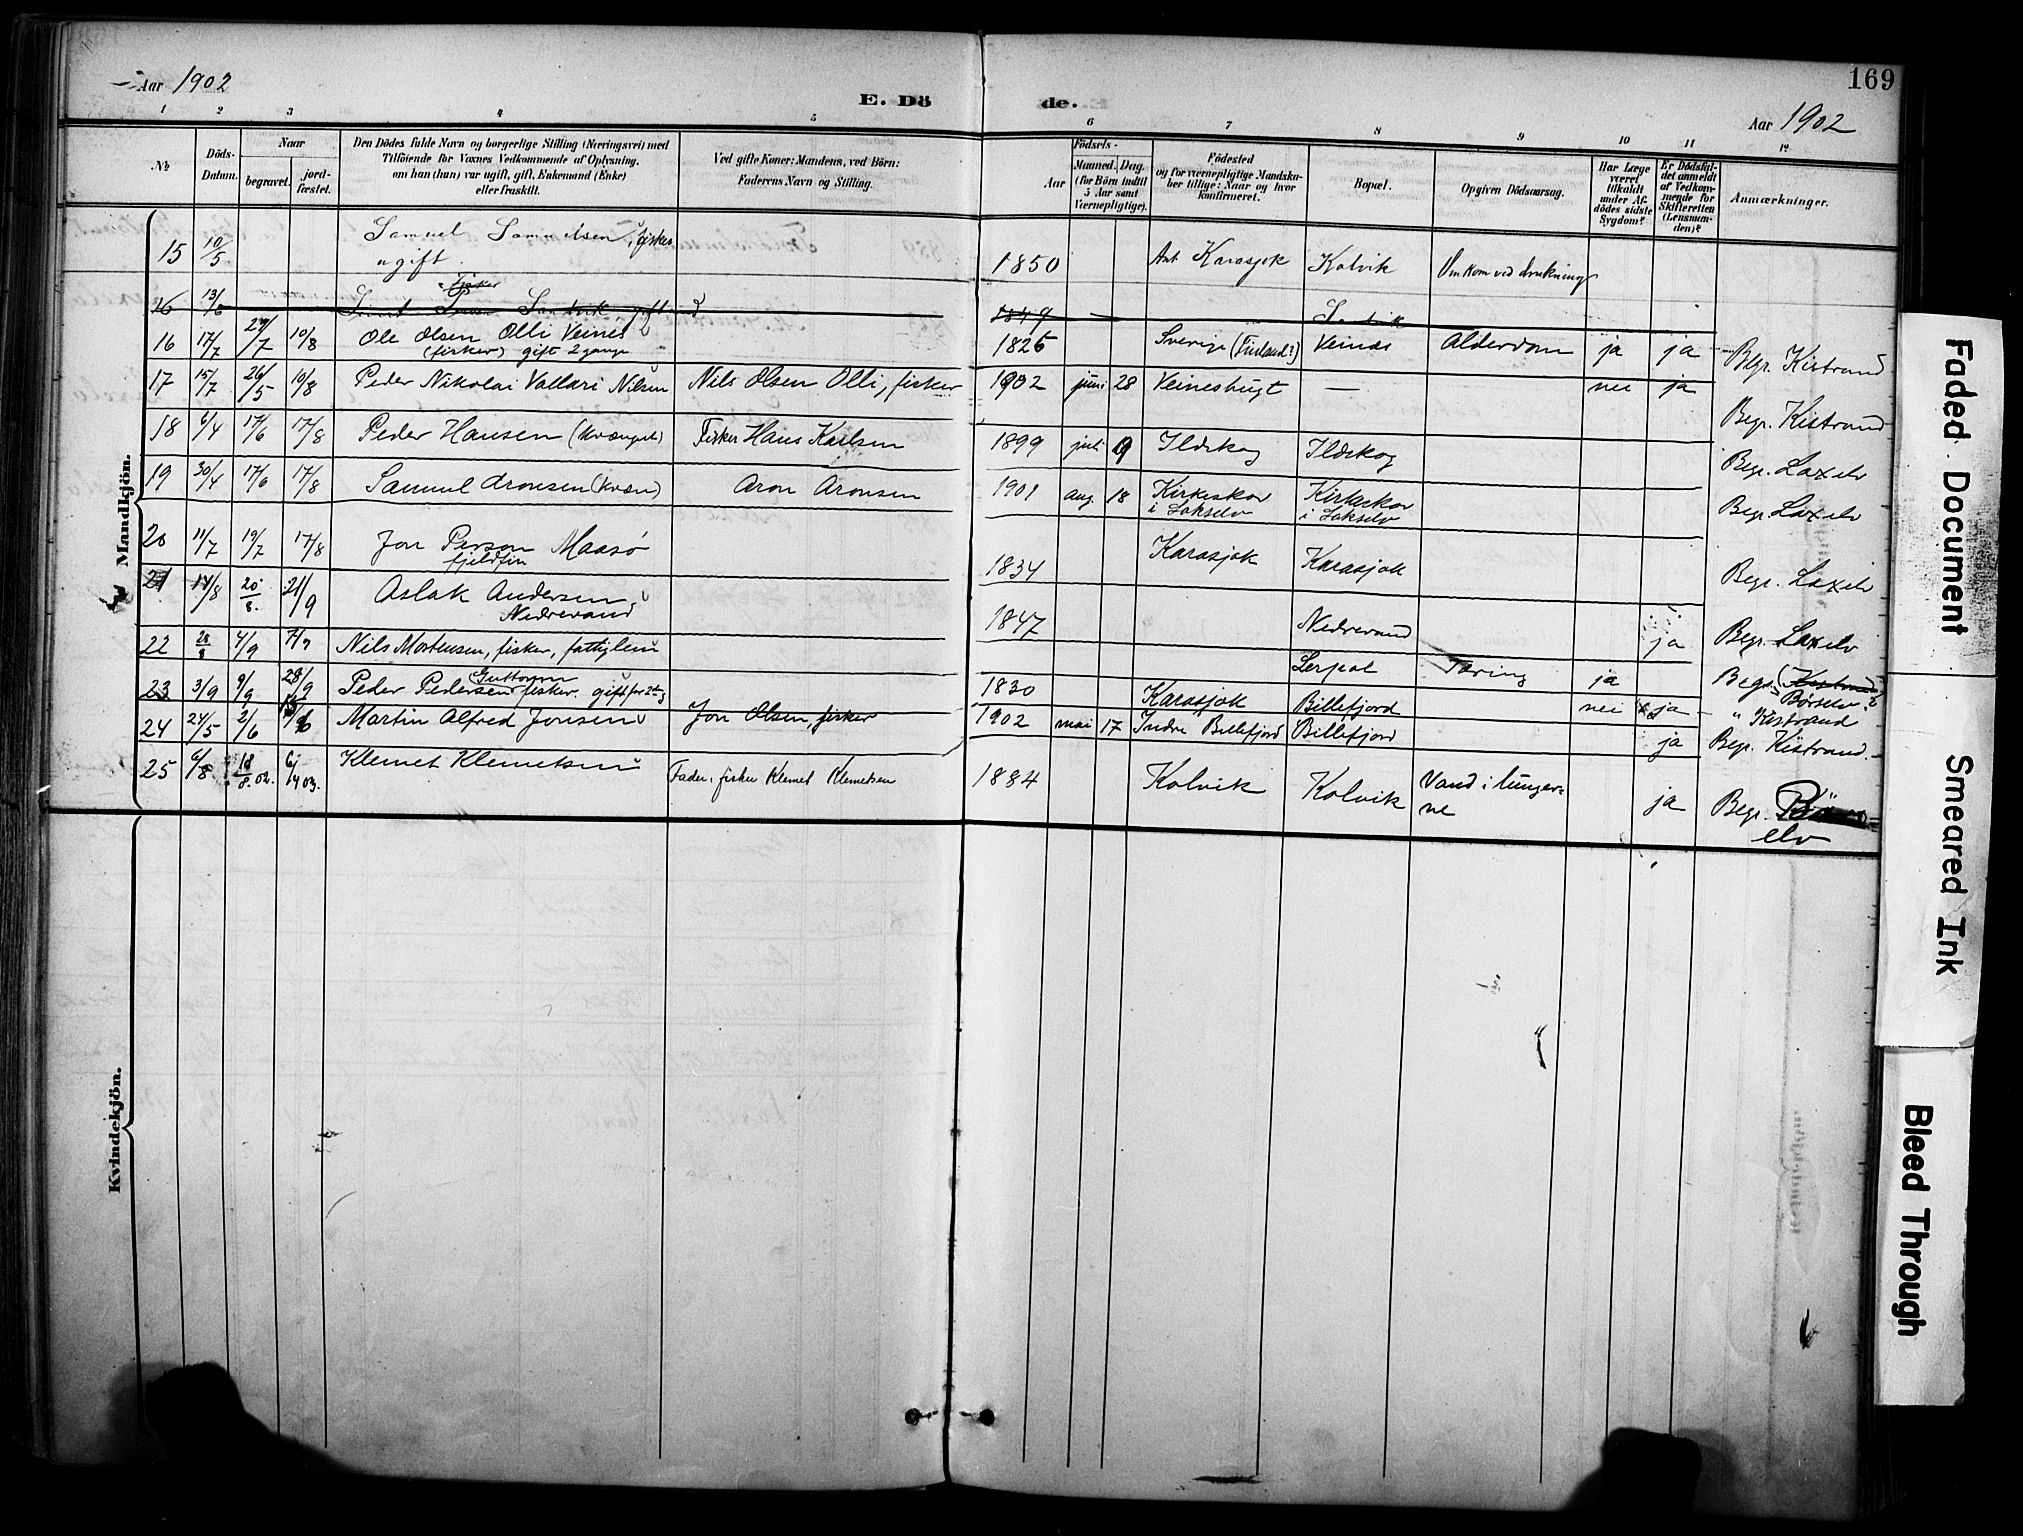 Aar 1902
E. Döde.
169
Aar 1902
1 2 3 4 5 6 7 8 9 10 11 12
No
Döds-Datum.
Naar
begravet.
jordfæstet.
Den Dödes fulde Navn og borgerlige Stilling (Næringsvei) med
Tilföiende for Voxnes Vedkommende af Oplysning,
om han (hun) var ugift, gift, Enkemand (Enke)
eller fraskilt.
Ved gifte Koner: Mandens, ved Börn:
Faderens Navn og Stilling.
Födsels-
Aar
Maaned. Dag.
(for Börn indtil
5 Aar samt
Værnepligtige).
Födested
og for værnepligtige Mandskaber tillige: Naar og hvor
konfirmeret.
Bopæl.
Opgiven Dödsaarsag.
Har Læge
været
tilkaldt
under Afdödes sidste
Sygdom?
Er Dödsfaldet anmeldt
af Vedkommende for
Skifteretten
(Lensmanden)?
Anmærkninger.
Mandkjön.
15 10/5 Samuel Samuelsen, fisker
ugift. 1850 Ant. Karasjok Kolvik Omkom ved drukning
16 13/6 fisker Sandvik gift 1849
16 17/7 27/7 10/8 Ole Olsen Olli Veines
(fisker) gift 2 gange 1825 Sverige (Finland?) Veines Alderdom ja ja Begr. Kistrand
17 15/7 26/5 10/8 Peder Nikolai Vallari Nilsen Nils Olsen Olli, fisker 1902 juni 28 Veinesbugt — nei ja Begr. Kistrand
18 6/4 17/6 17/8 Peder Hansen Fisker Hans Karlsen 1899 juli 9 Ildskog Ildskog Begr. Laxelv
19 30/4 17/6 17/8 Samuel Aronsen (kvæn) Aron Aronsen 1901 aug. 18 Kirkeskov
i Lakselv Kirkeskov
i Lakselv Begr. Laxelv
20 11/7 19/7 17/8 Jon Person Maasø
fjeldfin 1834 Karasjok Karasjok Begr. Laxelv
21 14/8 20/8. 21/9 Aslak Andersen
Nedrevand 1847 Nedrevand ja Begr. Laxelv
22 4/9 7/9 Nils Mortensen, fisker, fattiglem Lerpol Tæring ja Begr. Kistrand
Børselv?
23 3/9 9/9 28/9 Peder Pedersen Guttorm fisker. gift for 2den g 1830 Karasjok Billefjord nei ja " Kistrand
24 24/5 2/6 Martin Alfred Jonsen Jon Olsen, fisker 1902 mai 17 Indre Billefjord Billefjord ja Begr. Kistrand.
25 6/8 18/8. 02. 6/4 03. Klemet Klemetsen Fader: fisker Klemet Klemetsen 1884 Kolvik Kolvik Vand i lunger=
ne ja Begr.
elv
Kvindekjön.
Faded Document
Smeared Ink
Bleed Through